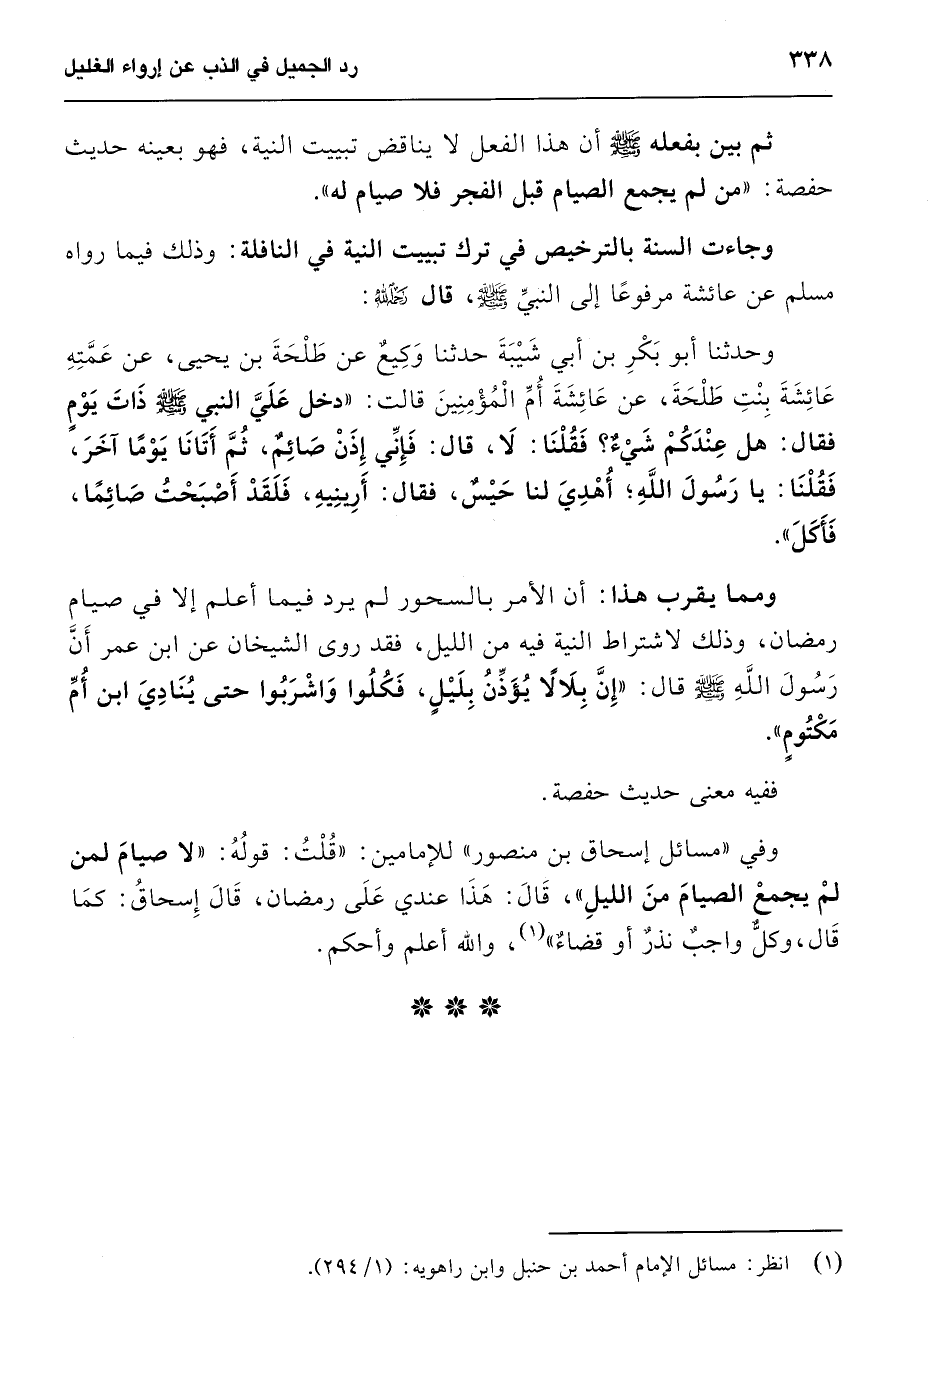 ٣٣٨
رد الجميل في الذب عن إرواء الغليل
ثم بين بفعله ﷺ أن هذا الفعل لا يناقض تبييت النية، فهو بعينه حديث
حفصة: «من لم يجمع الصيام قبل الفجر فلا صيام له».
وجاءت السنة بالترخيص في ترك تبييت النية في النافلة: وذلك فيما رواه
مسلم عن عائشة مرفوعًا إلى النبيِّ ﷺ، قال رَحِمَهُ اللهُ:
وحدثنا أبو بَكْرِ بن أبي شَيْبَةَ حدثنا وَكِيعٌ عن طَلْحَةَ بن يحيى، عن عَمَّتِهِ
عَائِشَةَ بِنْتِ طَلْحَةَ، عن عَائِشَةَ أُمِّ الْمُؤْمِنِينَ قالت: «دخل عَلَيَّ النبي ﷺ ذَاتَ يَوْمٍ
فقال: هل عِنْدَكُمْ شَيْءٌ؟ فَقُلْنَا: لَا، قال: فَإِنِّي إِذَنْ صَائِمٌ، ثُمَّ أَتَانَا يَوْمًا آخَرَ،
فَقُلْنَا: يا رَسُولَ اللَّهِ؛ أُهْدِيَ لنا حَيْسٌ، فقال: أَرِينِيهِ، فَلَقَدْ أَصْبَحْتُ صَائِمًا،
فَأَكَلَ».
ومما يقرب هذا: أن الأمر بالسحور لم يرد فيما أعلم إلا في صيام
رمضان، وذلك لاشتراط النية فيه من الليل، فقد روى الشيخان عن ابن عمر أَنَّ
رَسُولَ اللَّهِ ﷺ قال: «إِنَّ بِلَالًا يُؤَذِّنُ بِلَيْلٍ، فَكُلُوا وَاشْرَبُوا حتى يُنَادِيَ ابن أُمِّ
مَكْتُومٍ».
ففيه معنى حديث حفصة.
وفي «مسائل إسحاق بن منصور» للإمامين: «قُلْتُ: قولُهُ: «لا صيامَ لمن
لمْ يجمعْ الصيامَ منَ الليلِ»، قَالَ: هَذَا عندي عَلَى رمضان، قَالَ إسحاقُ: كمَا
قَال،وكلٌّ واجبٌ نذرٌ أو قضاءٌ»(١)، والله أعلم وأحكم.
(١) انظر: مسائل الإمام أحمد بن حنبل وابن راهويه: (١/ ٢٩٤).